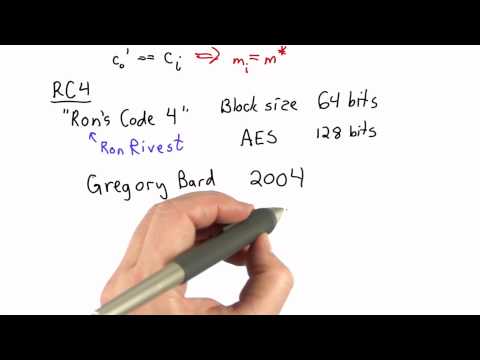 c₀' == cᵢ ⇔ mᵢ = m*
RC4
"Ron's Code 4"
Ron Rivest
Block size 64 bits
AES 128 bits
Gregory Bard 2004